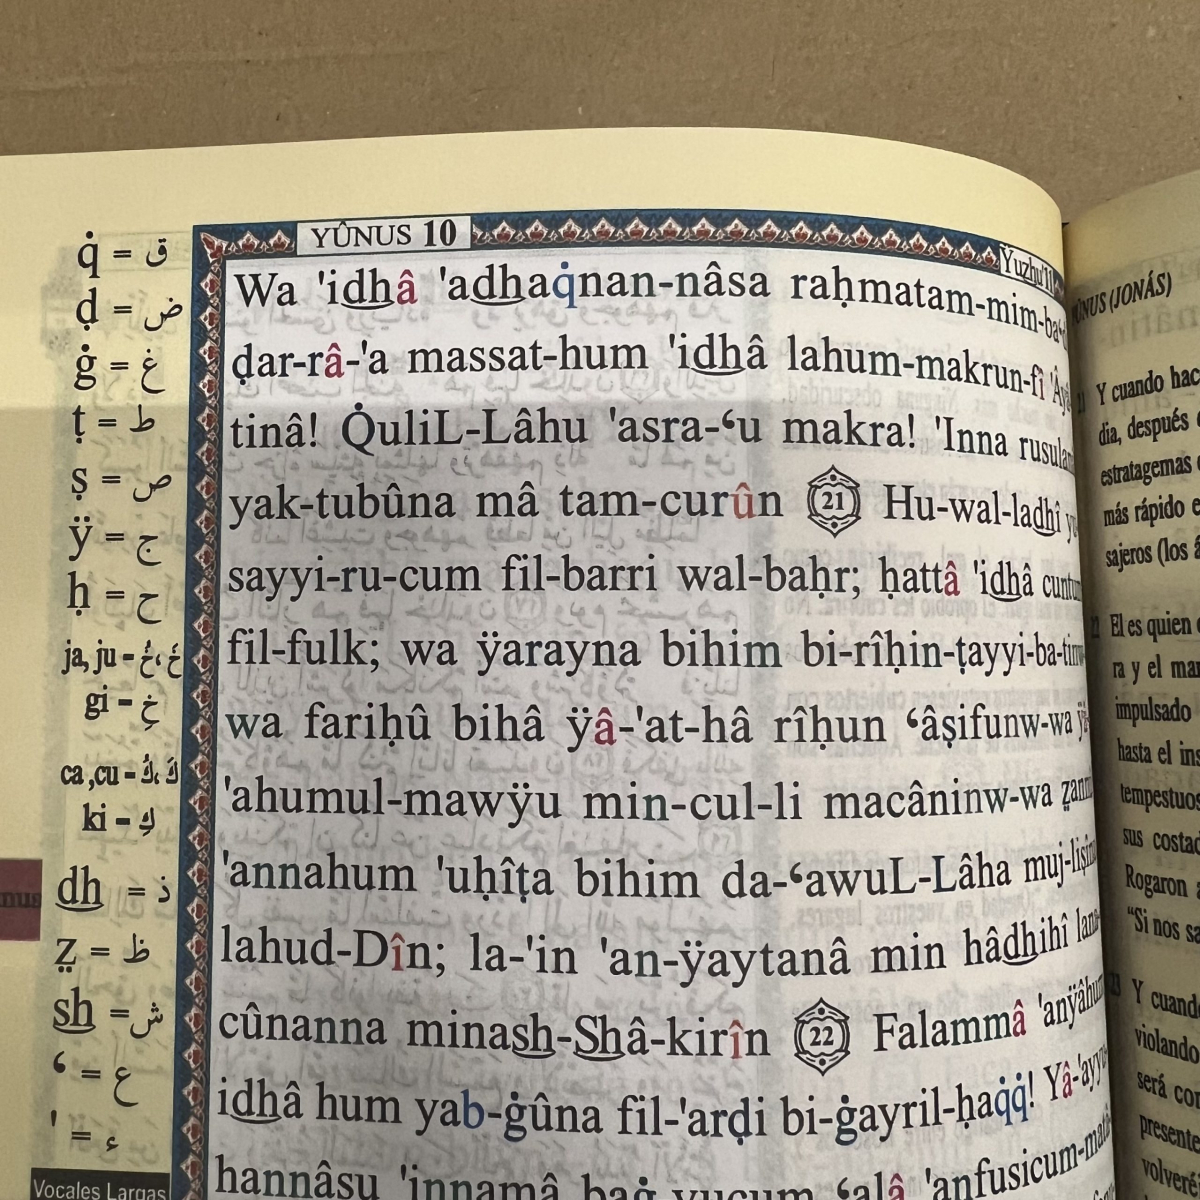 YÛNUS 10
Ÿuzhu'11
q̇ = ق
ḍ = ض
ġ = غ
ṭ = ط
ṣ = ص
ÿ = ج
ḥ = ح
ja, ju - خَ، خُ
gi - خِ
ca ,cu - كَ، كُ
ki - كِ
dh = ذ
ẓ = ظ
sh = ش
‘ = ع
' = ء
Vocales Largas
nus
Wa 'idhâ 'adhaq̇nan-nâsa raḥmatam-mim-ba‘-
ḍar-râ-'a massat-hum 'idhâ lahum-makrun-fî 'Âyâ
tinâ! Q̇uliL-Lâhu 'asra-‘u makra! 'Inna rusulanâ
yak-tubûna mâ tam-curûn 21 Hu-wal-ladhî
sayyi-ru-cum fil-barri wal-baḥr; ḥattâ 'idhâ cuntum
fil-fulk; wa ÿarayna bihim bi-rîḥin-ṭayyi-ba-tinw-
wa fariḥû bihâ ÿâ-'at-hâ rîḥun ‘âṣifunw-wa
'ahumul-mawÿu min-cul-li macâninw-wa ẓann
'annahum 'uḥîṭa bihim da-‘awuL-Lâha muj-liṣîna
lahud-Dîn; la-'in 'an-ÿaytanâ min hâdhihî lana-
cûnanna minash-Shâ-kirîn 22 Falammâ 'anÿâhum
idhâ hum yab-ġûna fil-'arḍi bi-ġayril-ḥaq̇q̇! Yâ-'ayyu-
hannâsu 'innamâ baġ yucum ‘alâ 'anfusicum-matâ
YÛNUS (JONÁS)
21 Y cuando hac
dia, después
estratagemas
más rápido e
sajeros (los á
22 El es quien
ra y el mar
impulsado
hasta el ins
tempestuos
sus costad
Rogaron a
“Si nos sa
23 Y cuando
violando
será con
presente
volveré